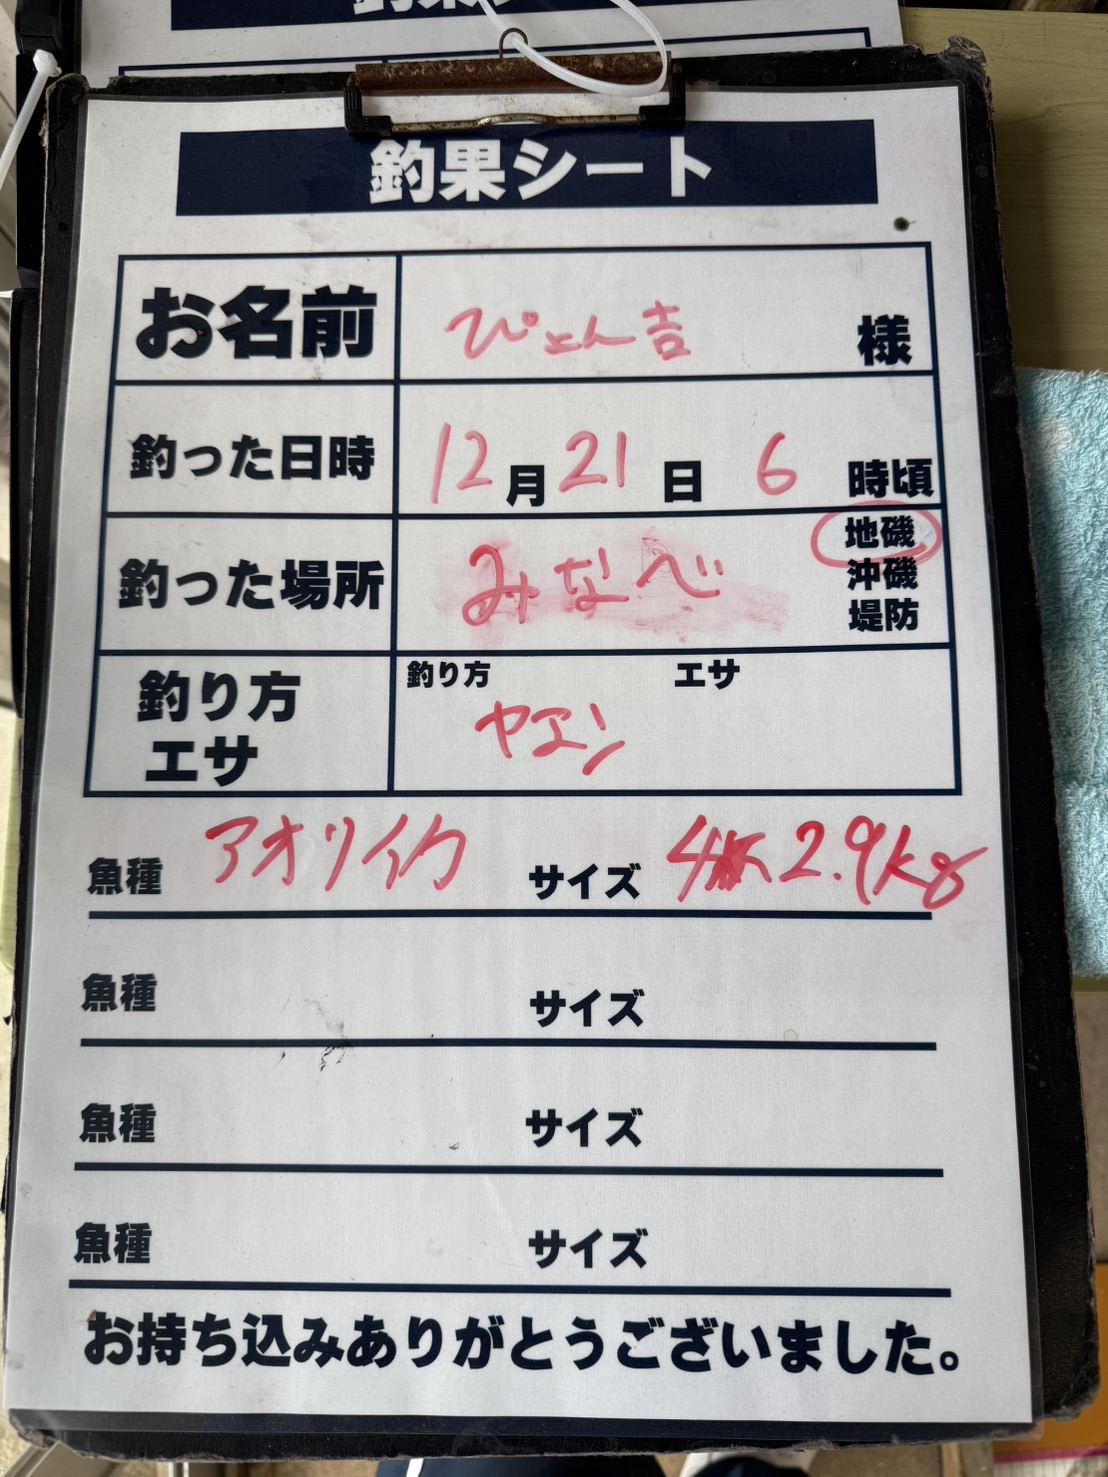 釣果シート
お名前 ぴょん吉 様
釣った日時 12月21日 6時頃
釣った場所 みなべ 地磯
沖磯
堤防
釣り方 エサ
釣り方 ヤエン
エサ
魚種 アオリイカ サイズ 2.9kg
魚種 サイズ
魚種 サイズ
魚種 サイズ
お持ち込みありがとうございました。